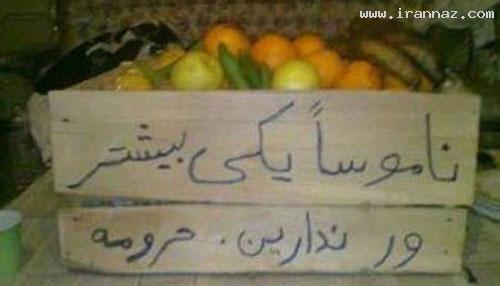 www.irannaz.com
ناموساً یکی بیشتر
ور ندارین. حرومه